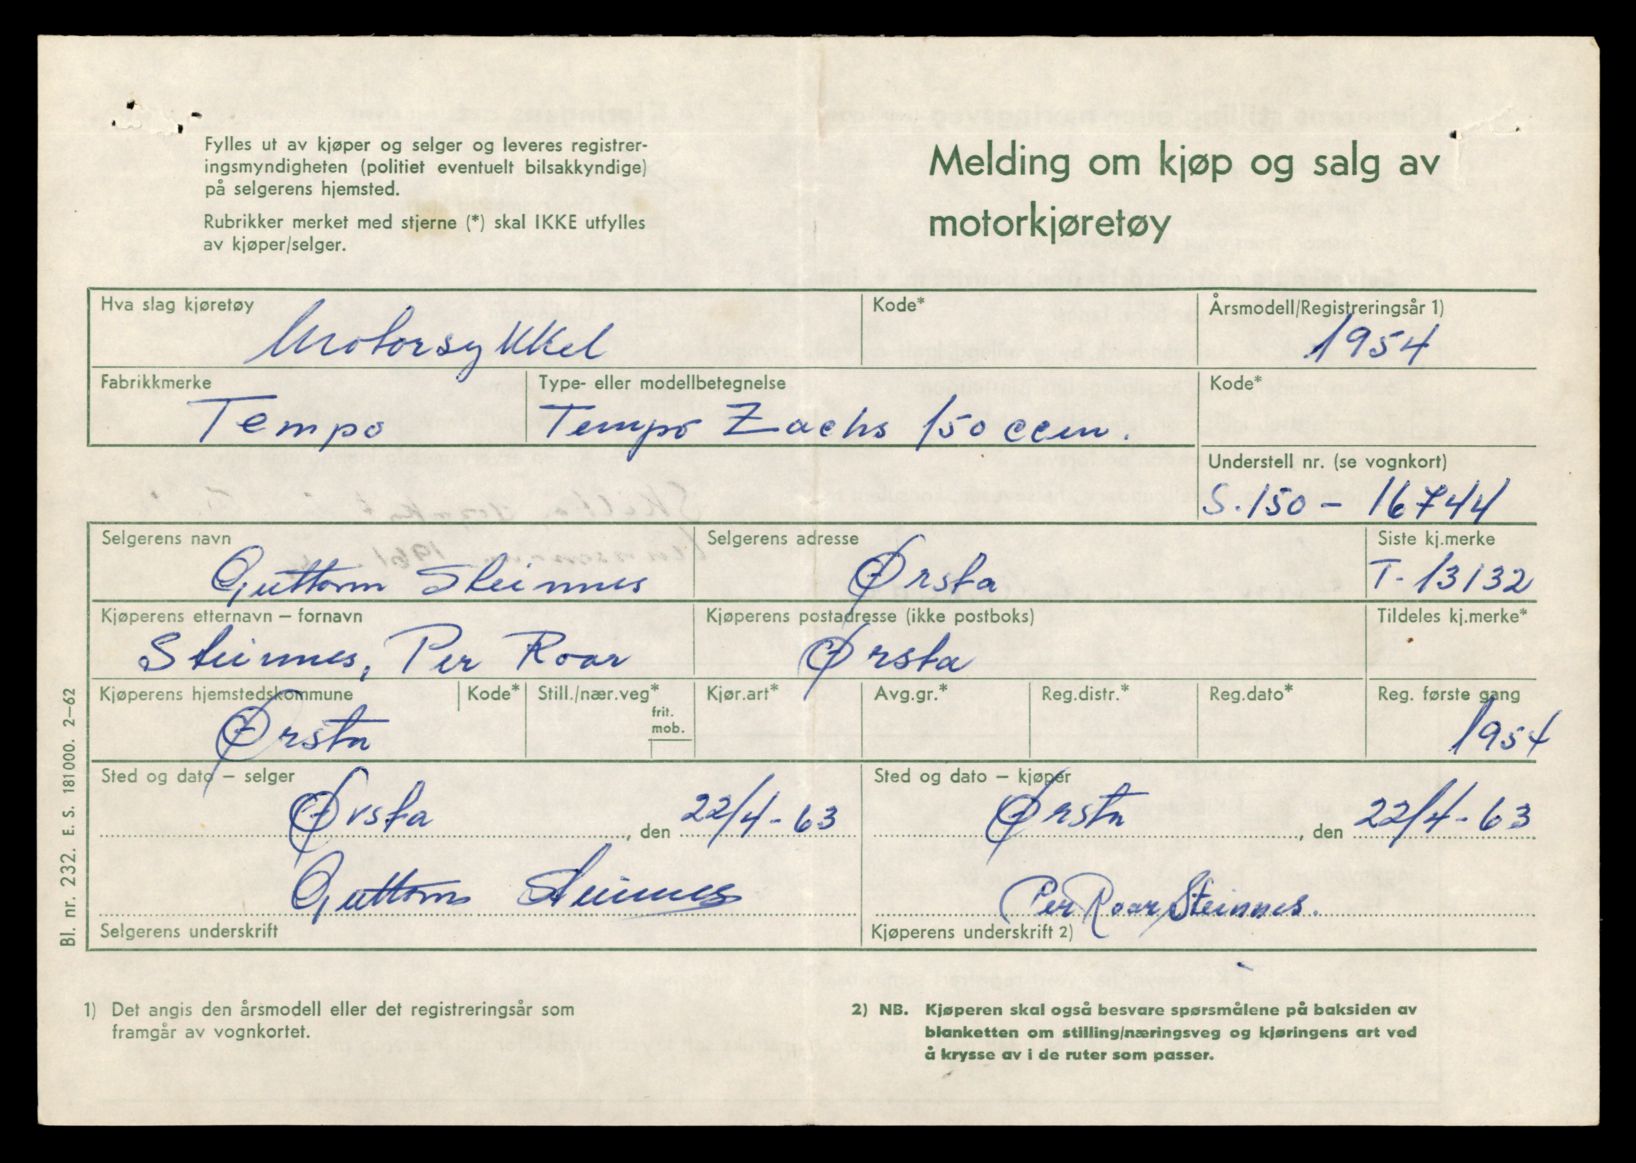 Fylles ut av kjøper og selger og leveres registrer-
ingsmyndigheten (politiet eventuelt bilsakkyndige)
på selgerens hjemsted.
Rubrikker merket med stjerne (*) skal IKKE utfylles
av kjøper/selger.
Melding om kjøp og salg av
motorkjøretøy
Hva slag kjøretøy
Motorsykkel
Kode*
Årsmodell/Registreringsår 1)
1954
Fabrikkmerke
Tempo
Type- eller modellbetegnelse
Tempo Zachs 150 ccm.
Kode*
Understell nr. (se vognkort)
S.150 - 16744
Selgerens navn
Guttorm Steinnes
Selgerens adresse
Ørsta
Siste kj.merke
T-13132
Kjøperens etternavn – fornavn
Steinnes, Per Roar
Kjøperens postadresse (ikke postboks)
Ørsta
Tildeles kj.merke*
Kjøperens hjemstedskommune
Ørsta
Kode*
Still./nær.veg*
frit.
mob.
Kjør.art*
Avg.gr.*
Reg.distr.*
Reg.dato*
Reg. første gang
1954
Sted og dato – selger
Ørsta, den 22/4-63
Guttorm Steinnes
Selgerens underskrift
Sted og dato – kjøper
Ørsta, den 22/4-63
Per Roar Steinnes.
Kjøperens underskrift 2)
Bl. nr. 232. E. S. 181000. 2–62
1) Det angis den årsmodell eller det registreringsår som
framgår av vognkortet.
2) NB. Kjøperen skal også besvare spørsmålene på baksiden av
blanketten om stilling/næringsveg og kjøringens art ved
å krysse av i de ruter som passer.